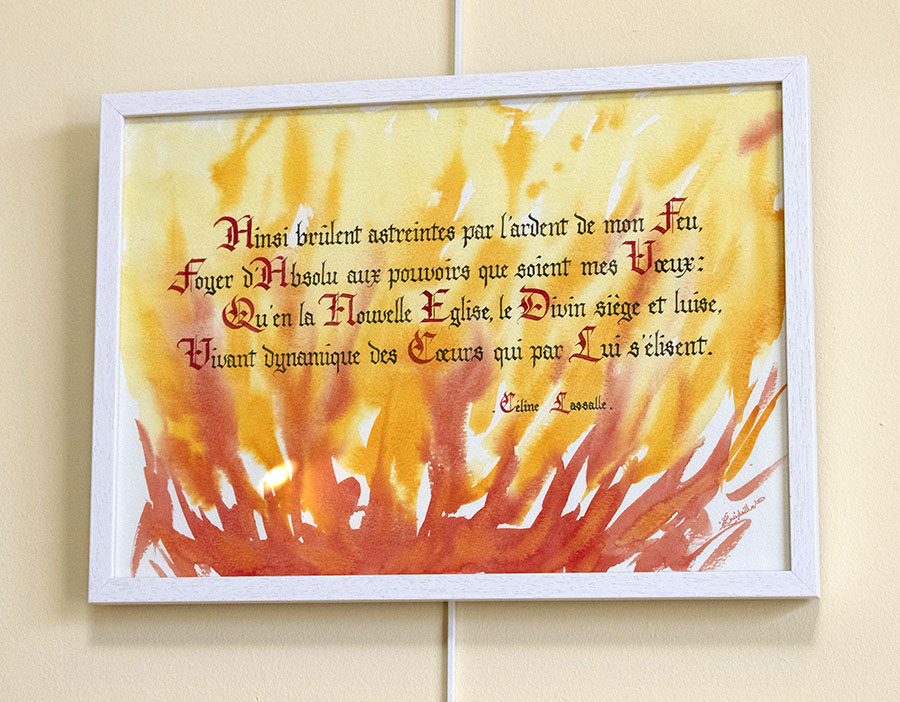 Ainsi brûlent astreintes par l'ardent de mon Feu,
Foyer d'Absolu aux pouvoirs que soient mes Vœux:
Qu'en la Nouvelle Eglise, le Divin siège et luise,
Vivant dynamique des Cœurs qui par Lui s'élisent.
. Céline Lassalle .